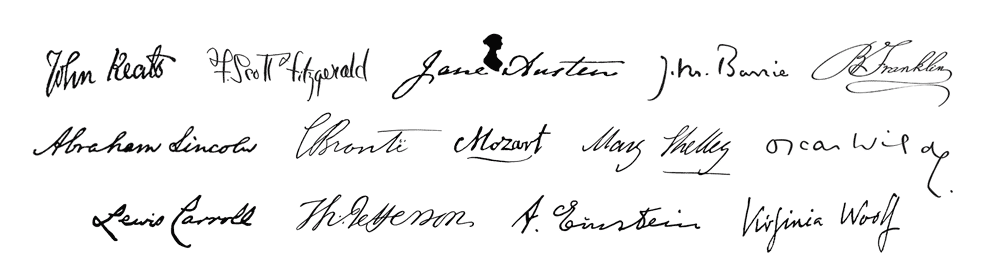 John Keats F. Scott Fitzgerald Jane Austen J. M. Barrie B Franklin
Abraham Lincoln CBrontë Mozart Mary Shelley Oscar Wilde.
Lewis Carroll Th. Jefferson A. Einstein Virginia Woolf